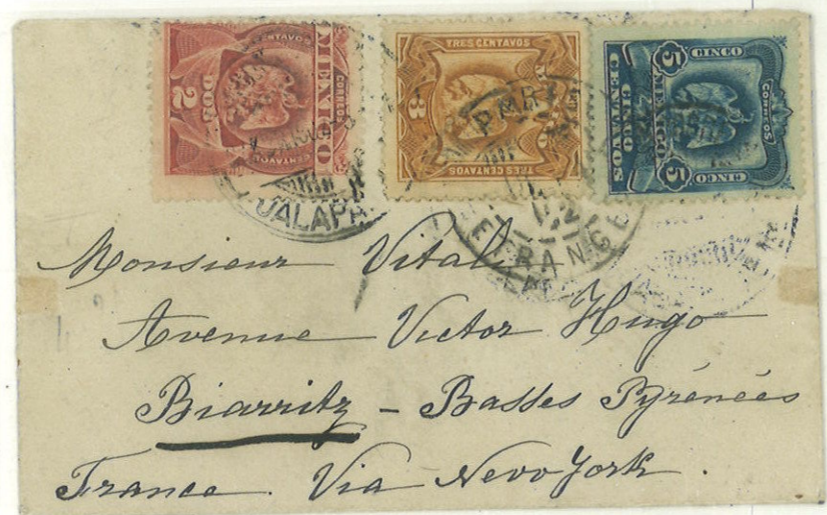 CENTAVOS
2
DOS
MEXICO
CORREOS
CENTAVOS
TRES CENTAVOS
3
TRES CENTAVOS
CINCO
5
CENTAVOS
CINCO
MEXICO
CORREOS
CINCO
5
JALAPA
PAR
ETRANGER
Monsieur Vital
Avenue Victor Hugo
Biarritz - Basses Pyrénées
France. Via New York.